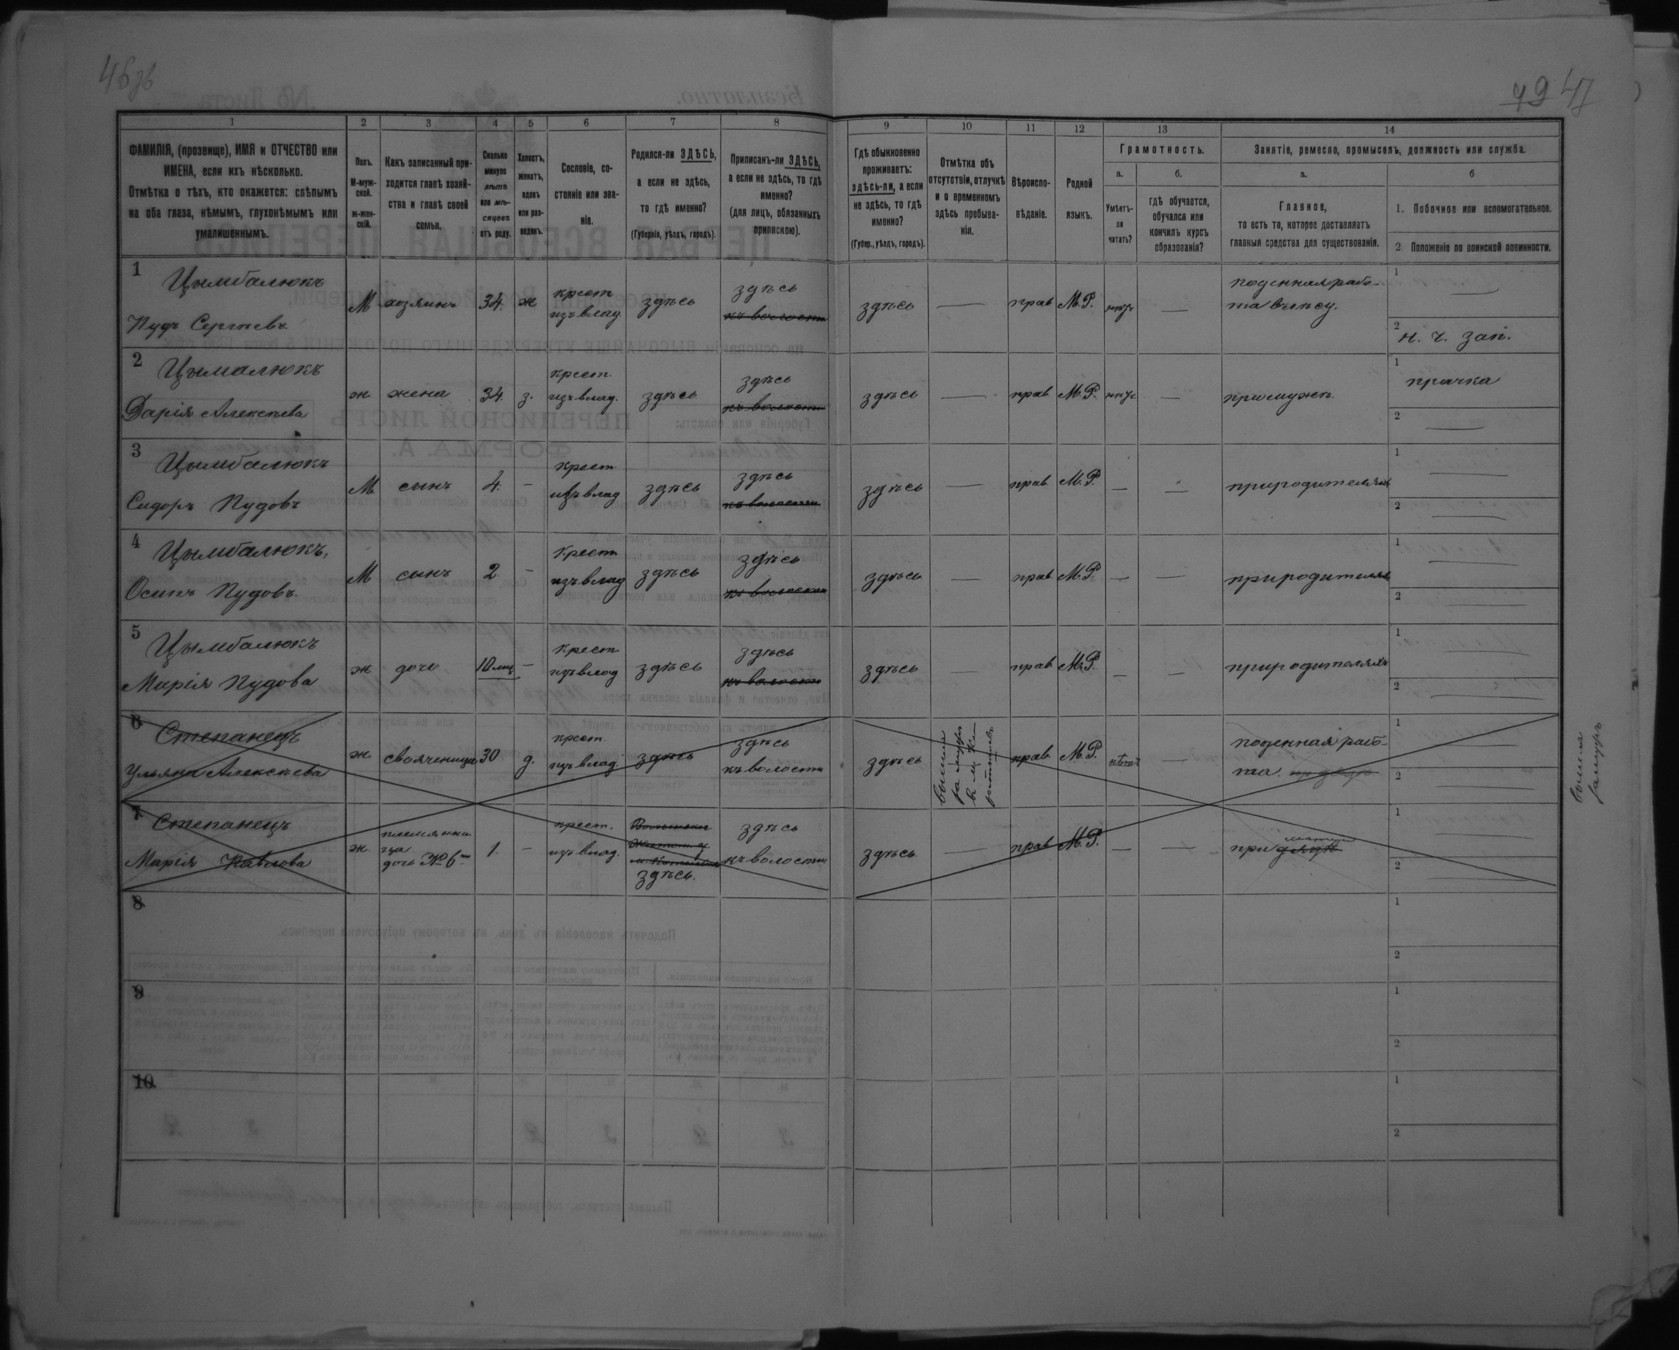 46об
79 47
1
2
3
4
5
6
7
8
9
10
11
12
13
14
ФАМИЛІЯ, (прозвище), ИМЯ и ОТЧЕСТВО или
ИМЕНА, если ихъ нѣсколько.
Отмѣтка о тѣхъ, кто окажется: слѣпымъ
на оба глаза, нѣмымъ, глухонѣмымъ или
умалишеннымъ.
Полъ.
М-муж-
ской.
ж-жен-
скій.
Какъ записанный при-
ходится главѣ хозяй-
ства и главѣ своей
семьи.
Сколько
минуло
лѣтъ
или мѣ-
сяцевъ
отъ роду.
Холостъ,
женатъ,
вдовъ
или раз-
веденъ.
Сословіе, со-
стояніе или зва-
ніе.
Родился-ли ЗДѢСЬ,
а если не здѣсь,
то гдѣ именно?
(Губернія, уѣздъ, городъ).
Приписанъ-ли ЗДѢСЬ,
а если не здѣсь, то гдѣ
именно?
(для лицъ, обязанныхъ
припискою).
Гдѣ обыкновенно
проживаетъ:
здѣсь-ли, а если
не здѣсь, то гдѣ
именно?
(Губер., уѣздъ, городъ).
Отмѣтка объ
отсутствіи, отлучкѣ
и о временномъ
здѣсь пребыва-
ніи.
Вѣроиспо-
вѣданіе.
Родной
языкъ.
Грамотность.
а.
б.
Умѣетъ-
ли
читать?
гдѣ обучается,
обучался или
кончилъ курсъ
образованія?
Занятіе, ремесло, промыселъ, должность или служба.
а.
б
Главное,
то есть то, которое доставляетъ
главныя средства для существованія.
1. Побочное или вспомогательное.
2 Положеніе по воинской повинности.
1
Цымбалюкъ
Пудъ Сергѣевъ
М хозяинъ 34. ж
крест.
изъ влад.
здѣсь
здѣсь
къ волости
здѣсь — прав М.Р. —
поденная рабо-
1 —
2 н. ч. зап.
2
Цымалюкъ
Дарія Алексѣева
ж жена 34 з.
крест.
изъ влад.
здѣсь
здѣсь
къ волости
здѣсь — прав М.Р. — при мужѣ
1 прачка
2 —
3
Цымбалюкъ
Сидоръ Пудовъ
М сынъ 4. —
крест
изъ влад
здѣсь
здѣсь
къ волости
здѣсь — прав М.Р. — — при родителяхъ
1 —
2 —
4
Цымбалюкъ,
Осипъ Пудовъ
М сынъ 2 —
крест
изъ влад
здѣсь
здѣсь
къ волости
здѣсь — прав М.Р. — — при родителяхъ
1 —
2 —
5
Цымбалюкъ
Марія Пудова
ж дочь 10 мц —
крест
изъ влад
здѣсь
здѣсь
къ волости
здѣсь — прав М.Р. — — при родителяхъ
1 —
2 —
6
Степанецъ
Ульяна Алексѣева
ж свояченица 30 д.
крест.
изъ влад.
здѣсь
здѣсь
къ волости
здѣсь
вышла
за мужъ
прав М.Р. —
поденная рабо-
та.
1 —
2 —
вышла
замужъ
7
Степанецъ
Марія Павлова
ж
племянни
ца
дочь № 6
1. —
крест.
изъ влад.
здѣсь.
здѣсь
къ волости
здѣсь — прав М.Р. — — при
1 —
2 —
8
1
2
9
1
2
10
1
2